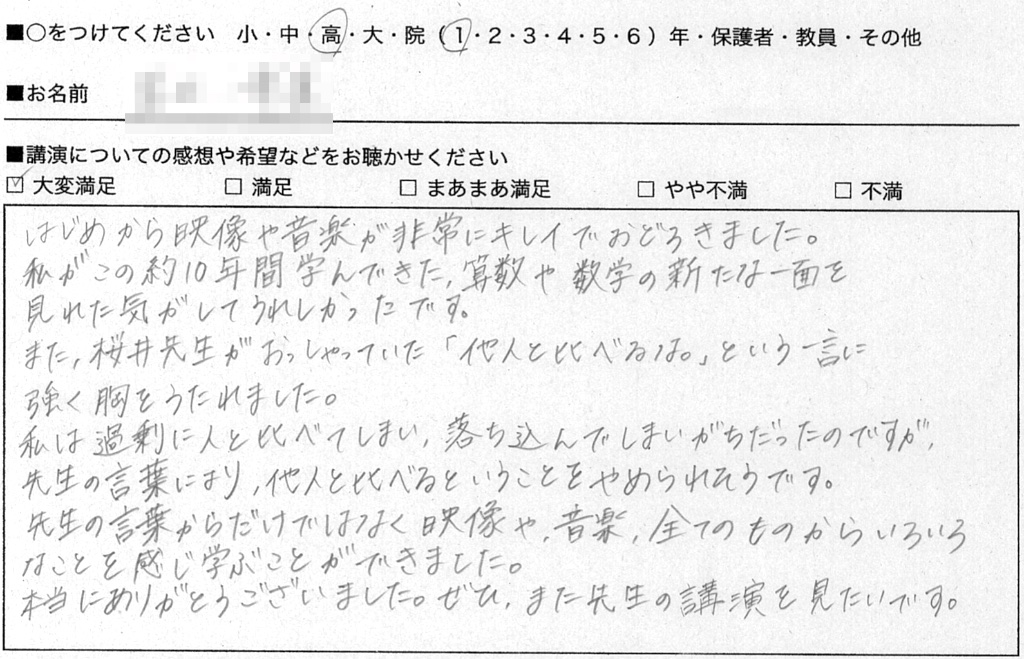 ■○をつけてください 小・中・高・大・院（1・2・3・4・5・6）年・保護者・教員・その他
■お名前
■講演についての感想や希望などをお聴かせください
☑ 大変満足 □ 満足 □ まあまあ満足 □ やや不満 □ 不満
はじめから映像や音楽が非常にキレイでおどろきました。
私がこの約10年間学んできた,算数や数学の新たな一面を
見れた気がしてうれしかったです。
また,桜井先生がおっしゃっていた「他人と比べるな。」という一言に
強く胸をうたれました。
私は過剰に人と比べてしまい,落ち込んでしまいがちだったのですが,
先生の言葉により,他人と比べるということをやめられそうです。
先生の言葉からだけではなく映像や,音楽,全てのものからいろいろ
なことを感じ学ぶことができました。
本当にありがとうございました。ぜひ,また先生の講演を見たいです。